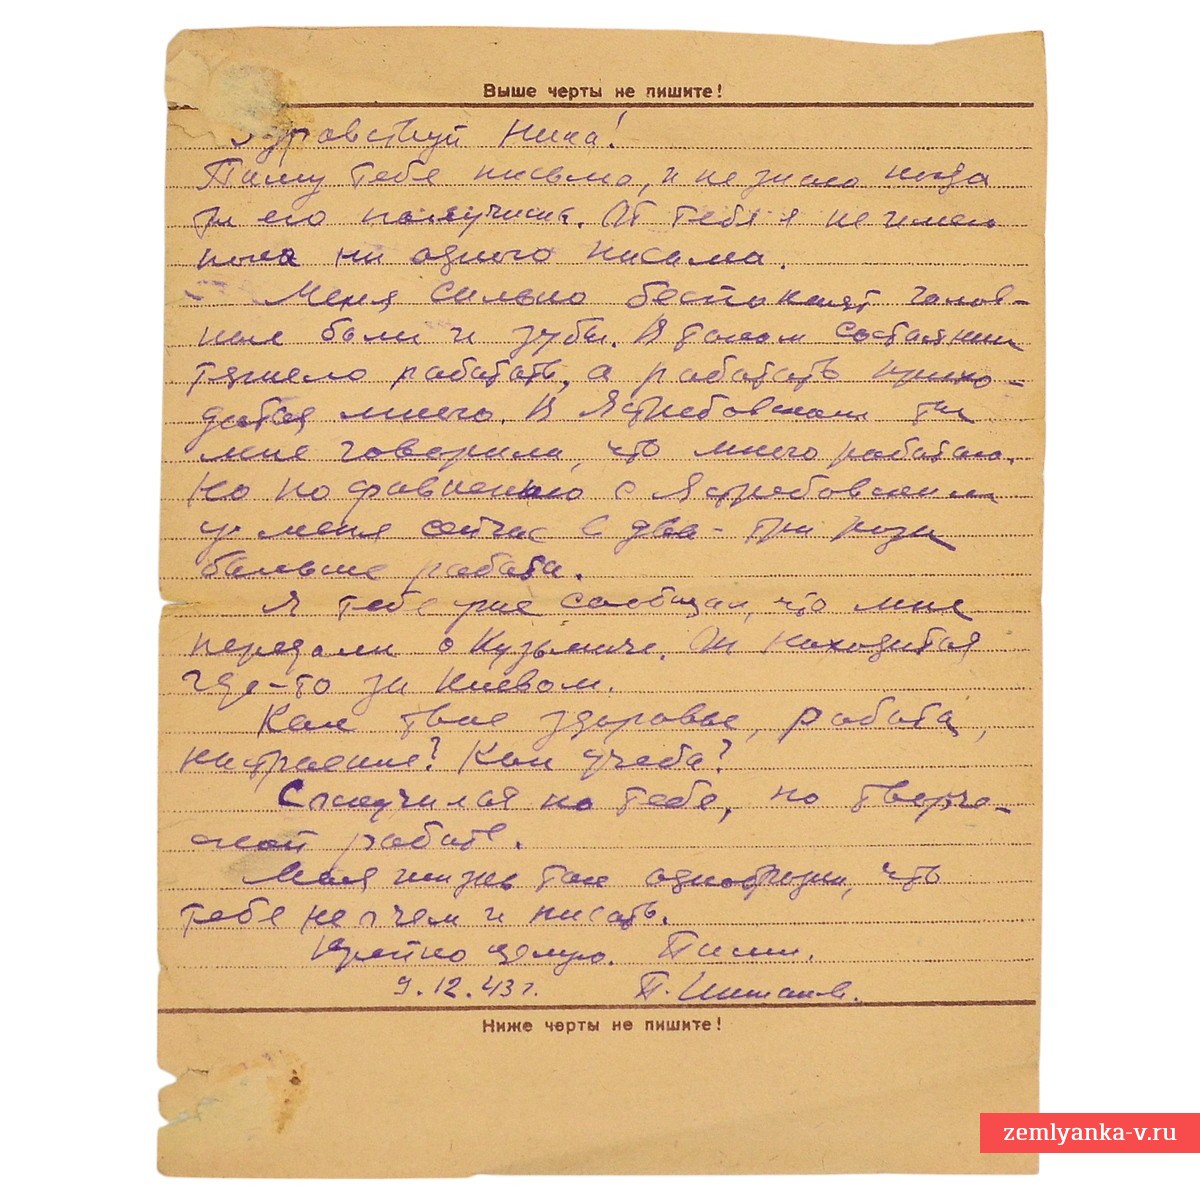 Выше черты не пишите!
Здравствуй Нина!
Пишу тебе письмо, и не знаю когда
ты его получишь. От тебя я не имею
пока ни одного письма.
Меня сильно беспокоят голов-
ные боли и зубы. В таком состоянии
тяжело работать, а работать прихо-
дится много. В Ястребовском ты
мне говорила, что много работаю.
Но по сравнению с Ястребовским
у меня сейчас в два-три раза
больше работы.
Я тебе уже сообщал, что мне
передали о Кузьмиче. Он находится
где-то за Киевом.
Как твое здоровье, работа,
настроение? Как учеба?
Соскучился по тебе, по творче-
ской работе.
Моя жизнь так однообразна, что
тебе не о чем и писать.
Крепко целую. Пиши.
9.12.43 г. П.
Ниже черты не пишите!
zemlyanka-v.ru